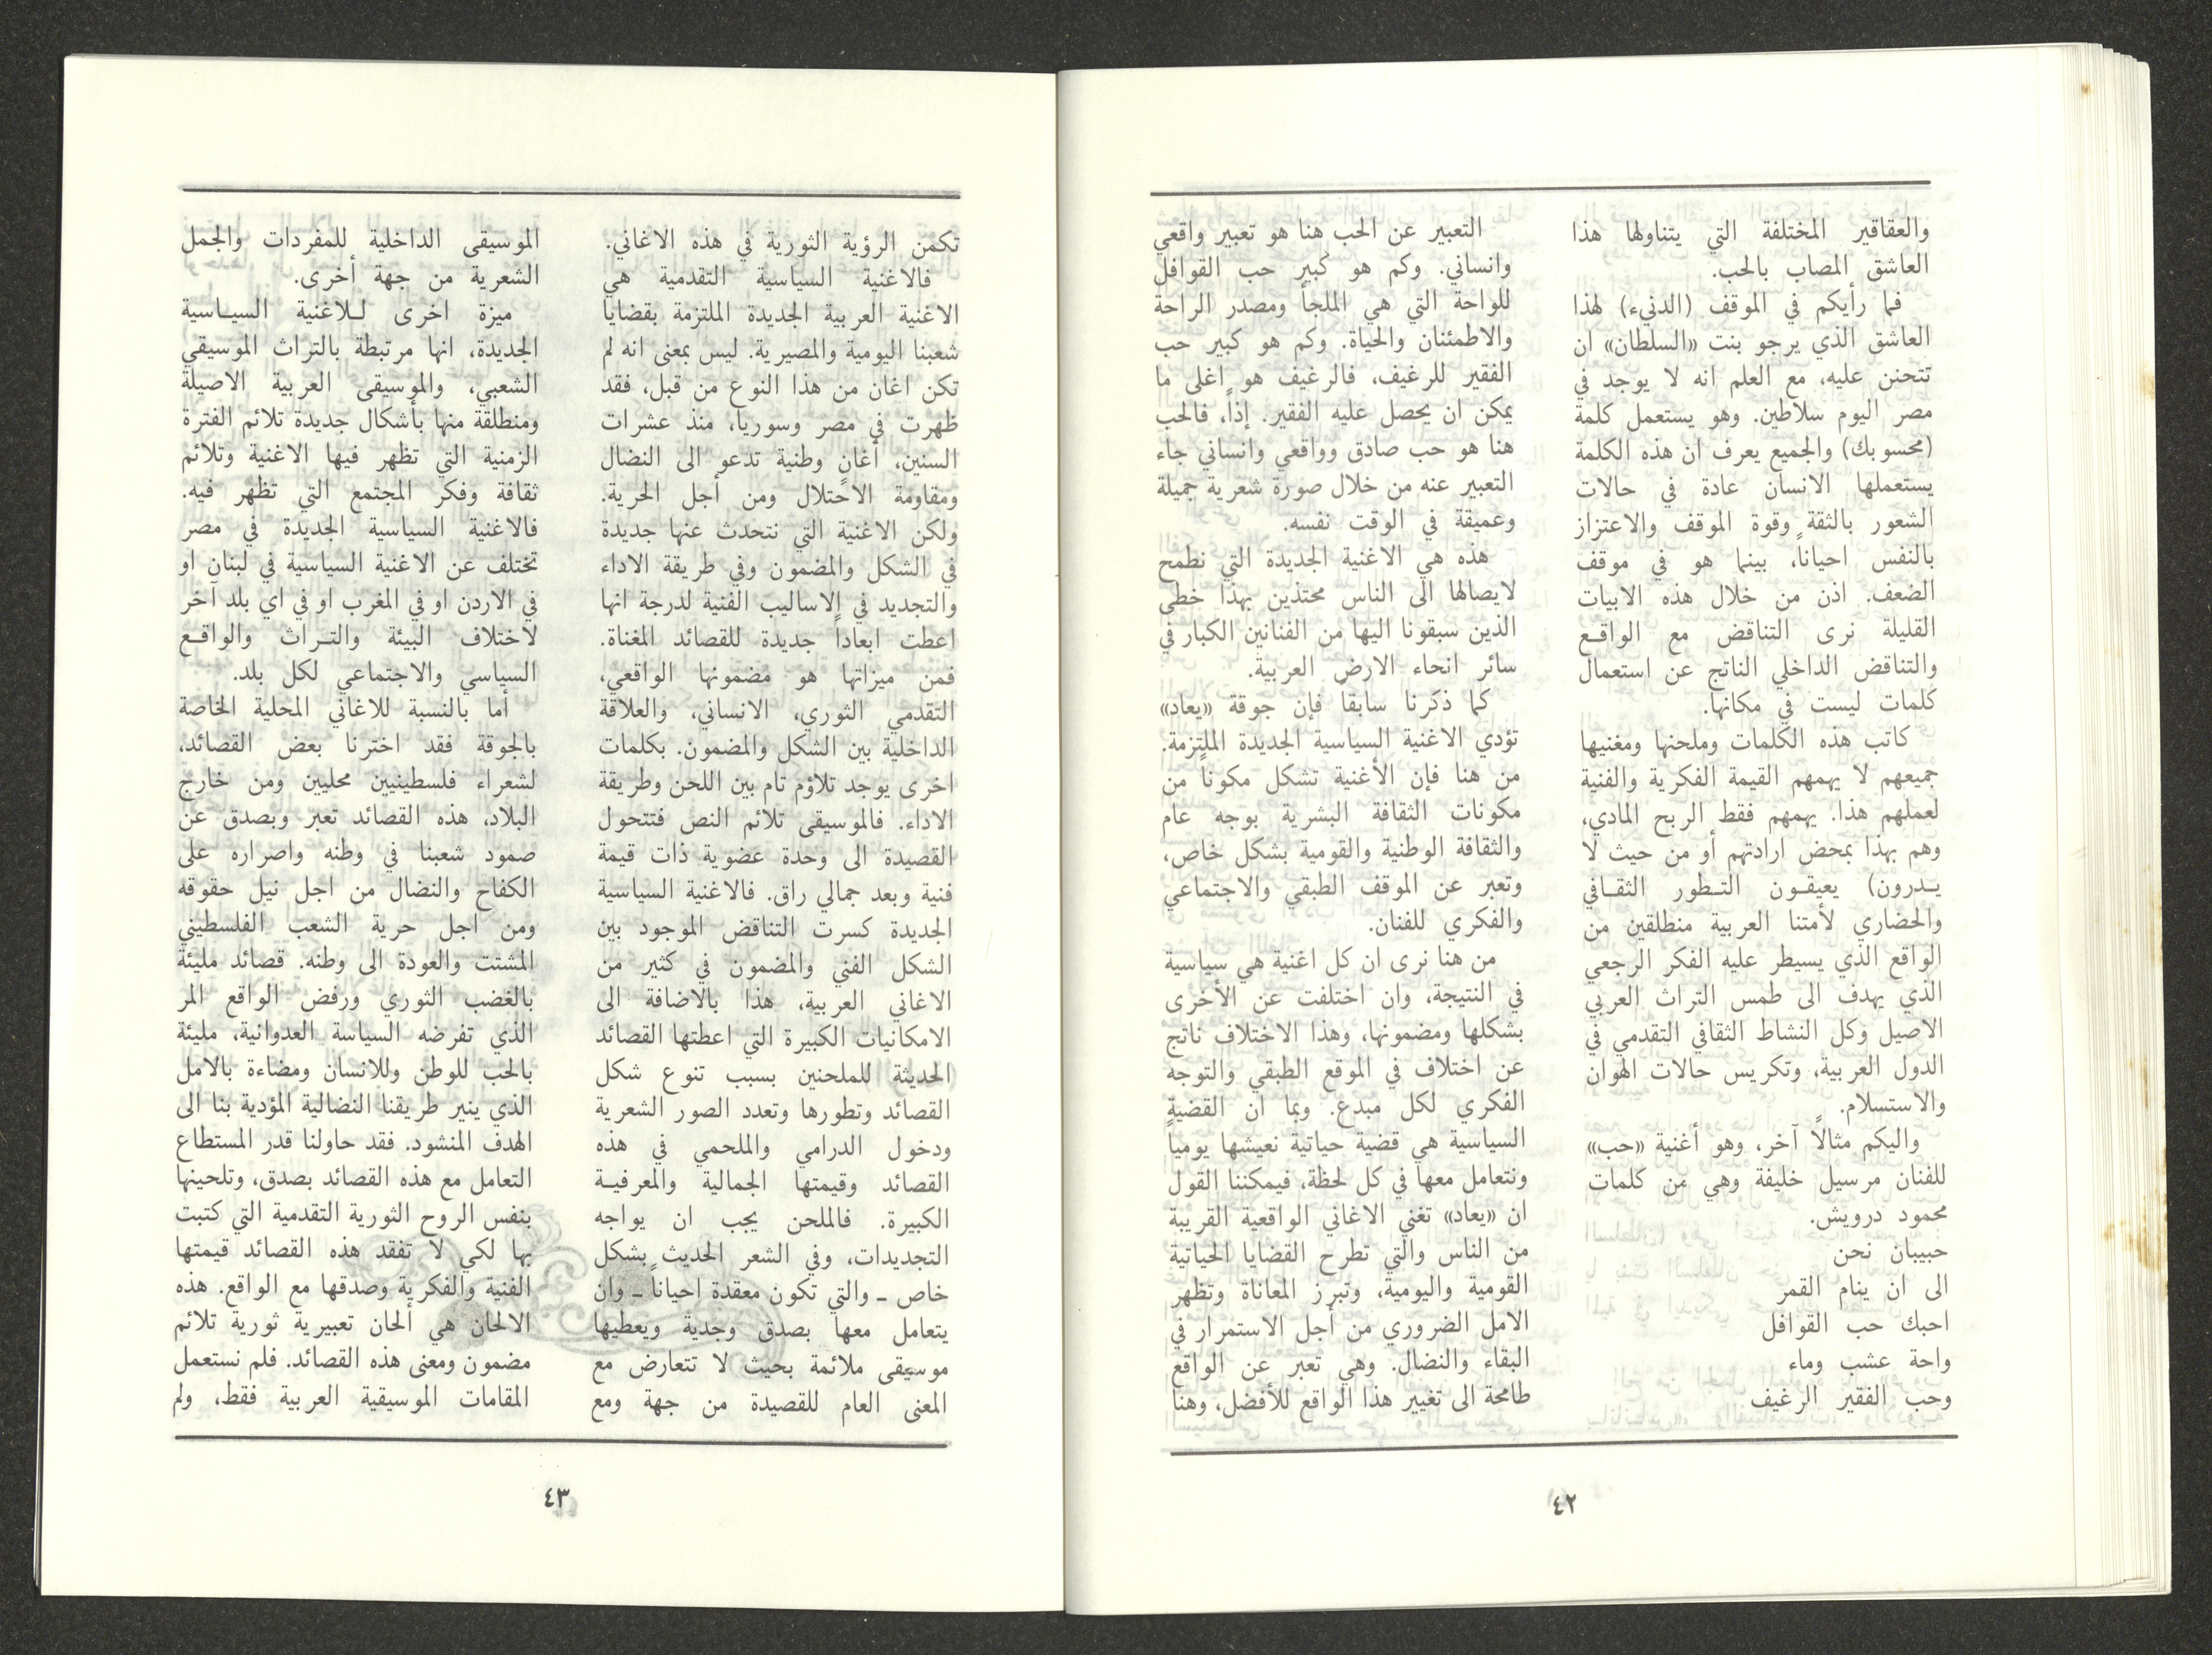 والعقاقير المختلفة التي يتناولها هذا
العاشق المصاب بالحب.
فما رأيكم في الموقف (الدنيء) لهذا
العاشق الذي يرجو بنت «السلطان» ان
تتحنن عليه، مع العلم انه لا يوجد في
مصر اليوم سلاطين. وهو يستعمل كلمة
(محسوبك) والجميع يعرف ان هذه الكلمة
يستعملها الانسان عادة في حالات
الشعور بالثقة وقوة الموقف والاعتزاز
بالنفس احياناً، بينما هو في موقف
الضعف. اذن من خلال هذه الابيات
القليلة نرى التناقض مع الواقع
والتناقض الداخلي الناتج عن استعمال
كلمات ليست في مكانها.
كاتب هذه الكلمات وملحنها ومغنيها
جميعهم لا يهمهم القيمة الفكرية والفنية
لعملهم هذا. يهمهم فقط الربح المادي،
وهم بهذا بمحض ارادتهم أو من حيث لا
يدرون) يعيقون التطور الثقافي
والحضاري لأمتنا العربية منطلقين من
الواقع الذي يسيطر عليه الفكر الرجعي
الذي يهدف الى طمس التراث العربي
الاصيل وكل النشاط الثقافي التقدمي في
الدول العربية، وتكريس حالات الهوان
والاستسلام.
واليكم مثالاً آخر، وهو أغنية «حب»
للفنان مرسيل خليفة وهي من كلمات
محمود درويش.
حبيبان نحن
الى ان ينام القمر
احبك حب القوافل
واحة عشب وماء
وحب الفقير الرغيف
التعبير عن الحب هنا هو تعبير واقعي
وانساني. وكم هو كبير حب القوافل
للواحة التي هي الملجأ ومصدر الراحة
والاطمئنان والحياة. وكم هو كبير حب
الفقير للرغيف، فالرغيف هو اغلى ما
يمكن ان يحصل عليه الفقير. إذاً، فالحب
هنا هو حب صادق وواقعي وانساني جاء
التعبير عنه من خلال صورة شعرية جميلة
وعميقة في الوقت نفسه.
هذه هي الاغنية الجديدة التي نطمح
لايصالها الى الناس محتذين بهذا خطى
الذين سبقونا اليها من الفنانين الكبار في
سائر انحاء الارض العربية.
كما ذكرنا سابقاً فإن جوقة «يعاد»
تؤدي الاغنية السياسية الجديدة الملتزمة.
من هنا فإن الأغنية تشكل مكوناً من
مكونات الثقافة البشرية بوجه عام
والثقافة الوطنية والقومية بشكل خاص،
وتعبر عن الموقف الطبقي والاجتماعي
والفكري للفنان.
من هنا نرى ان كل اغنية هي سياسية
في النتيجة، وان اختلفت عن الأخرى
بشكلها ومضمونها، وهذا الاختلاف ناتج
عن اختلاف في الموقع الطبقي والتوجه
الفكري لكل مبدع. وبما ان القضية
السياسية هي قضية حياتية نعيشها يومياً
ونتعامل معها في كل لحظة، فيمكننا القول
ان «يعاد» تغني الاغاني الواقعية القريبة
من الناس والتي تطرح القضايا الحياتية
القومية واليومية، وتبرز المعاناة وتظهر
الامل الضروري من أجل الاستمرار في
البقاء والنضال. وهي تعبر عن الواقع
طامحة الى تغيير هذا الواقع للأفضل، وهنا
٤٢
تكمن الرؤية الثورية في هذه الاغاني.
فالاغنية السياسية التقدمية هي
الاغنية العربية الجديدة الملتزمة بقضايا
شعبنا اليومية والمصيرية. ليس بمعنى انه لم
تكن اغان من هذا النوع من قبل، فقد
ظهرت في مصر وسوريا، منذ عشرات
السنين، أغانٍ وطنية تدعو الى النضال
ومقاومة الاحتلال ومن أجل الحرية.
ولكن الاغنية التي نتحدث عنها جديدة
في الشكل والمضمون وفي طريقة الاداء
والتجديد في الاساليب الفنية لدرجة انها
اعطت ابعاداً جديدة للقصائد المغناة.
فمن ميزاتها هو مضمونها الواقعي،
التقدمي الثوري، الانساني، والعلاقة
الداخلية بين الشكل والمضمون. بكلمات
اخرى يوجد تلاؤم تام بين اللحن وطريقة
الاداء. فالموسيقى تلائم النص فتتحول
القصيدة الى وحدة عضوية ذات قيمة
فنية وبعد جمالي راق. فالاغنية السياسية
الجديدة كسرت التناقض الموجود بين
الشكل الفني والمضمون في كثير من
الاغاني العربية، هذا بالاضافة الى
الامكانيات الكبيرة التي اعطتها القصائد
الحديثة للملحنين بسبب تنوع شكل
القصائد وتطورها وتعدد الصور الشعرية
ودخول الدرامي والملحمي في هذه
القصائد وقيمتها الجمالية والمعرفية
الكبيرة. فالملحن يجب ان يواجه
التجديدات، وفي الشعر الحديث بشكل
خاص ــ والتي تكون معقدة احياناً ــ وان
يتعامل معها بصدق وجدية ويعطيها
موسيقى ملائمة بحيث لا تتعارض مع
المعنى العام للقصيدة من جهة ومع
الموسيقى الداخلية للمفردات والجمل
الشعرية من جهة أخرى.
ميزة اخرى للاغنية السياسية
الجديدة، انها مرتبطة بالتراث الموسيقي
الشعبي، والموسيقى العربية الاصيلة
ومنطلقة منها بأشكال جديدة تلائم الفترة
الزمنية التي تظهر فيها الاغنية وتلائم
ثقافة وفكر المجتمع التي تظهر فيه.
فالاغنية السياسية الجديدة في مصر
تختلف عن الاغنية السياسية في لبنان او
في الاردن او في المغرب او في اي بلد آخر
لاختلاف البيئة والتراث والواقع
السياسي والاجتماعي لكل بلد.
أما بالنسبة للاغاني المحلية الخاصة
بالجوقة فقد اخترنا بعض القصائد،
لشعراء فلسطينيين محليين ومن خارج
البلاد، هذه القصائد تعبر وبصدق عن
صمود شعبنا في وطنه واصراره على
الكفاح والنضال من اجل نيل حقوقه
ومن اجل حرية الشعب الفلسطيني
المشتت والعودة الى وطنه. قصائد مليئة
بالغضب الثوري ورفض الواقع المر
الذي تفرضه السياسة العدوانية، مليئة
بالحب للوطن وللانسان ومضاءة بالامل
الذي ينير طريقنا النضالية المؤدية بنا الى
الهدف المنشود. فقد حاولنا قدر المستطاع
التعامل مع هذه القصائد بصدق، وتلحينها
بنفس الروح الثورية التقدمية التي كتبت
بها لكي لا تفقد هذه القصائد قيمتها
الفنية والفكرية وصدقها مع الواقع. هذه
الالحان هي ألحان تعبيرية ثورية تلائم
مضمون ومعنى هذه القصائد. فلم نستعمل
المقامات الموسيقية العربية فقط، ولم
٤٣